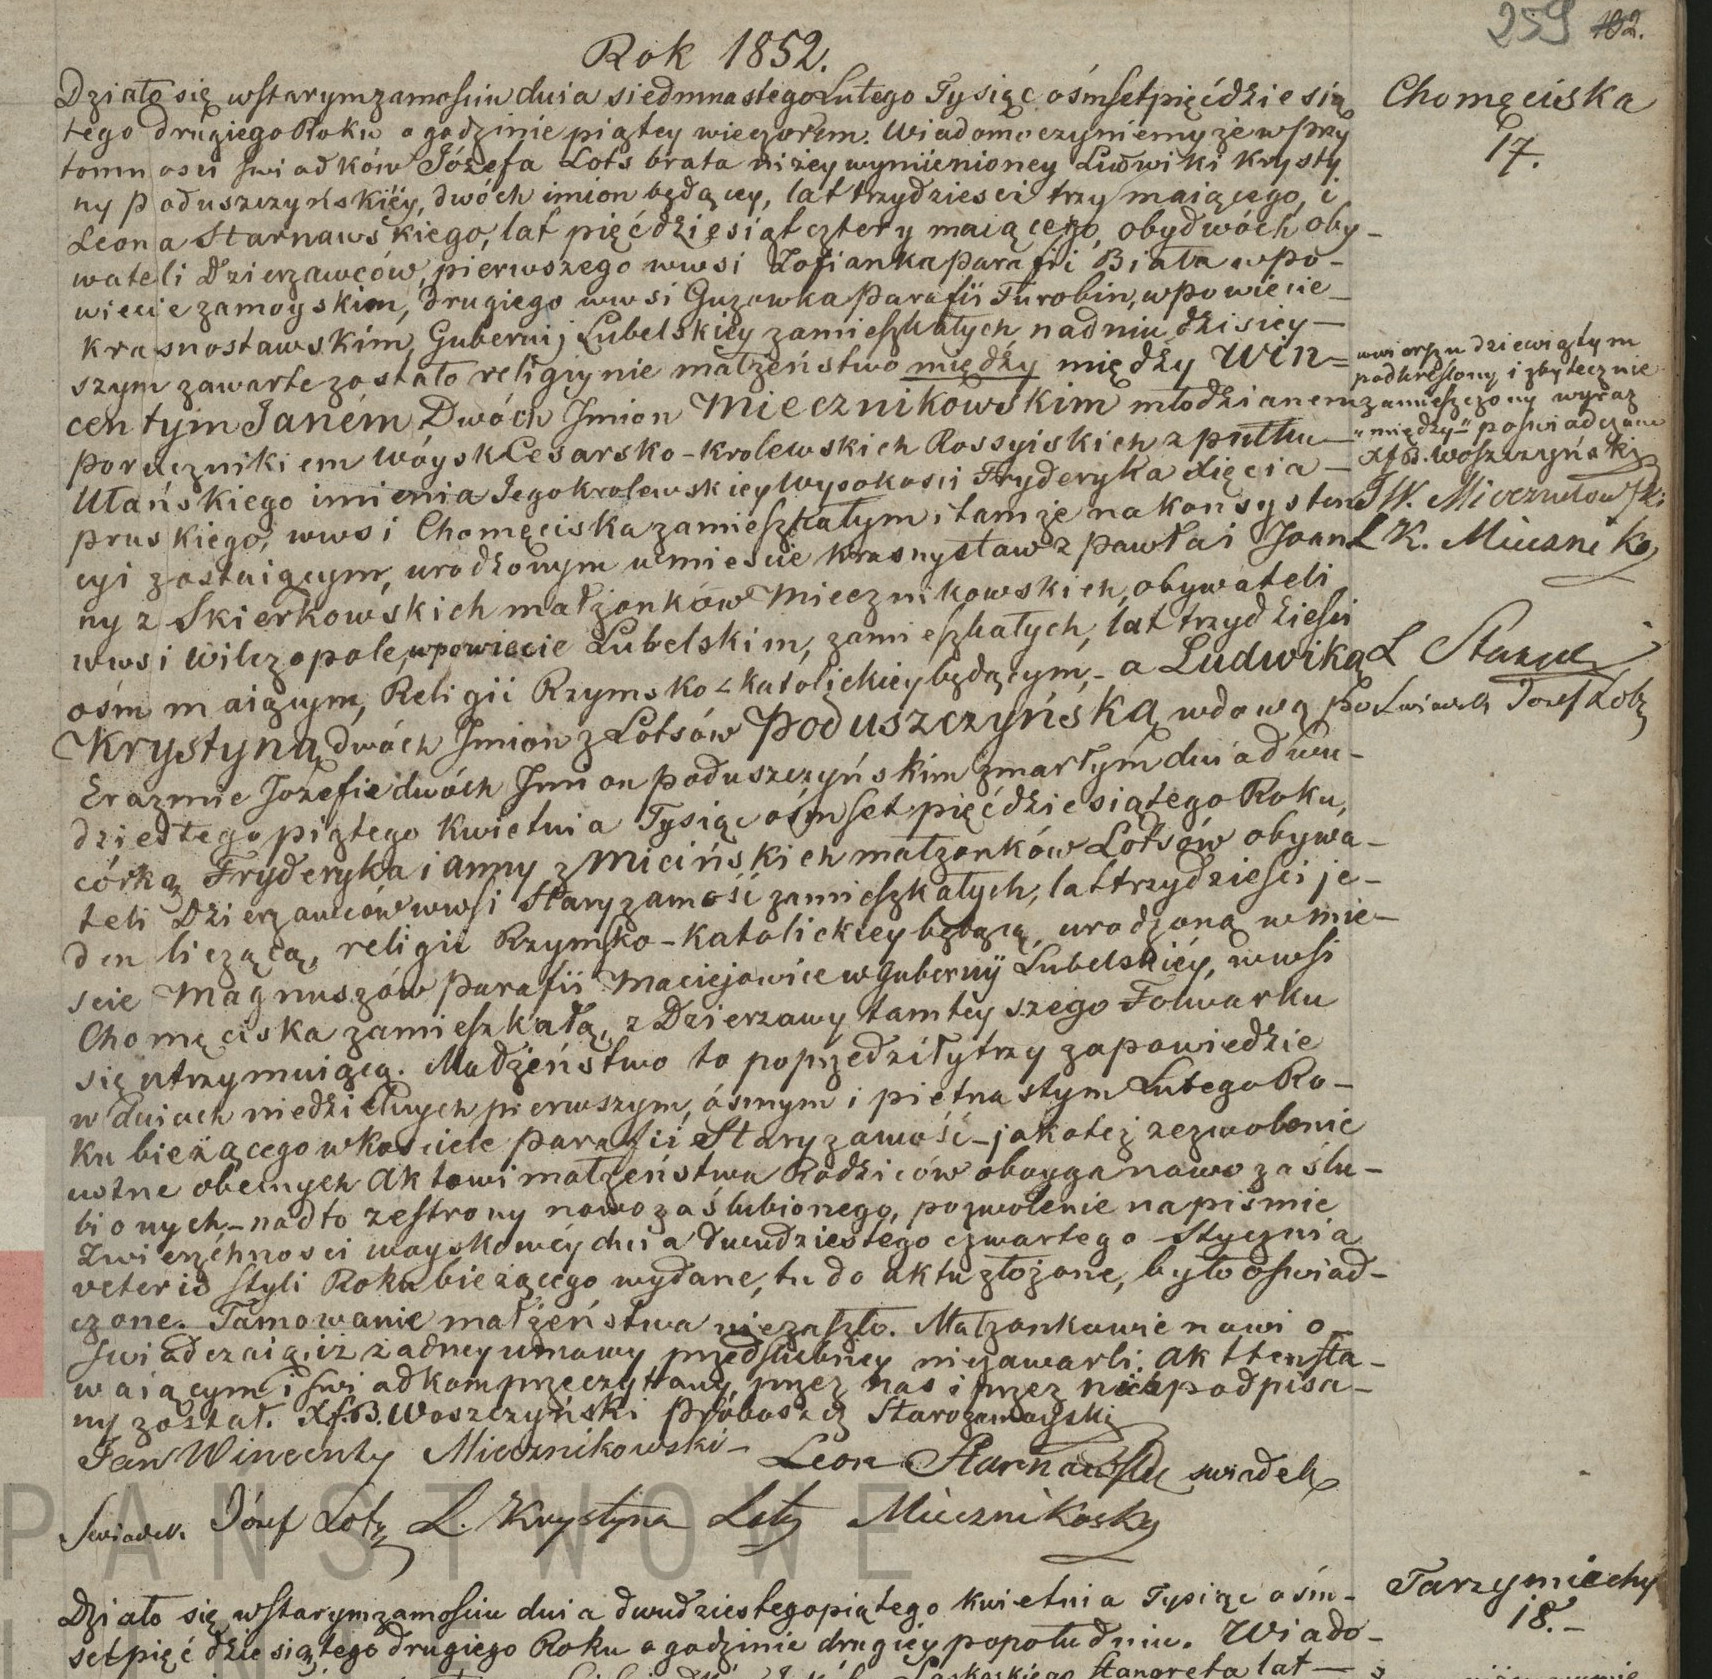 259 102.
Rok 1852.
Chomęciska
17.
Działo się w Starym zamościu dnia siedmnastego Lutego Tysiąc ośmset pięćdziesią
tego drugiego Roku o godzinie piątey wieczorem. Wiadomo czyniemy że w przy
tomności świadków Józefa Lots brata niżey wymienioney Ludwiki Krysty
ny Poduszczyńskiéy, dwóch imion będącey, lat trzydzieści trzy maiącego, i
Leona Starnawskiego, lat pięćdziesiąt cztery maiącego, obydwóch oby-
wateli Dzierzawców, pierwszego w wsi Zofianka parafii Biała w po-
wiecie zamoyskim, drugiego w wsi Guzowka parafii Turobin, w powiecie
krasnostawskim, Gubernij Lubelskiey zamieszkałych na dniu dzisiey-
szym zawarte zostało religiynie małżeństwo między między Win-
centym Janém Dwóch Imion Miecznikowskim młodzianem
porucznikiem wóysk Cesarsko-Krolewskich Rossyiskich z pułku
Ułańskiego imienia Jego krolewskiey Wysokości Fryderyka Xięcia
pruskiego, w wsi Chomęciska zamieszkałym i tamże na konsysten
cyi zostaiącym, urodzonym w mieście Krasnystaw z Pawła i Joan
ny z Skierkowskich małżonków Miecznikowskich, obywateli
w wsi Wilczopole, w powiecie Lubelskim, zamieszkałych, lat trzydzieści
ośm maiącym, Religii Rzymsko-katolickiey będącym, - a Ludwiką
Krystyną dwóch Imion z Lotsów Poduszczyńską wdową po
Erazmie Jozefie dwóch Imion poduszczyńskim zmarłym dnia dwu-
dziestego piątego Kwietnia Tysiąc ośmset pięćdziesiątego Roku,
córką Fryderyka i Anny z Micińskich małżonków Lotsów obywa-
teli Dzierzawców w wsi Stary zamość zamieszkałych, lat trzydzieści je-
den liczącą, religii Rzymsko-katolickiey będącą, urodzoną w mie-
scie Magnuszów parafii Maciejowice w Gubernij Lubelskiéy, w wsi
Chomęciska zamieszkałą, z Dzierzawy tamteyszego Folwarku
się utrzymuiącą. Małżeństwo to poprzedziły trzy zapowiedzie
w dniach niedzielnych pierwszym, ósmym i piętnastym Lutego Ro-
ku bieżącego w kościele parafii Stary zamość - jakoteż zezwolenie
ustne obecnych Aktowi małżeństwa Rodziców oboyga nowo zaślu-
bionych - nadto ze strony nowo zaślubionego, pozwolenie na piśmie
Zwierzchności woyskowéy dnia dwudziestego czwartego Stycznia
veteris styli Roku bieżącego wydane, tu do aktu złożone, było oświad-
czone. Tamowanie małżeństwa nie zaszło. Małżonkowie nowi o-
świadczaią iż żadney umowy przedślubney nie zawarli. Akt ten sta-
waiącym i świadkom przeczytany, przez nas i przez nich podpisa-
ny został. X. J. B. Woszczyński Proboszcz Starozamoyski
Jan Wincenty Miecznikowski - Leon Starnawski świadek
Świadek Józef Lotz L. Krystyna Loty Miecznikosky
w wierszu dziewiątym
podkreślony i zbytecznie
zamieszczony wyraz
"między" poświadczamy
X. J. B. Woszczyński
J W. Miecznikowski
L K. Miecznikos
L Starna
Świadek Jozef Lotz
Tarzymiechy
18.-
Działo się w Starym zamościu dnia dwudziestego piątego Kwietnia Tysiąc ośm-
set pięćdziesiątego drugiego Roku o godzinie drugiey popołudniu. Wiado-
Stangreta lat
PAŃSTWOWE